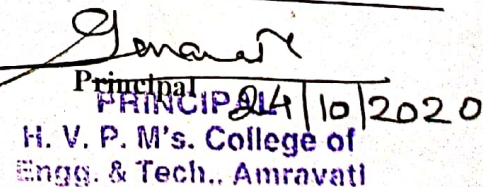 Principal
PRINCIPAL 24/10/2020
H. V. P. M's. College of
Engg. & Tech., Amravati